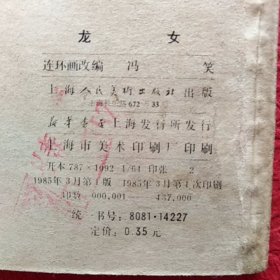 龙 女
连环画改编 冯 笑
上海人民美术出版社 出版
上海长乐路672弄33
新华书店上海发行所发行
上海市美术印刷厂印刷
开本 787×1092 1/64 印张 2
1985年3月第1版 1985年3月第1次印刷
印数 000,001——437,000
统一书号: 8081·14227
定价: 0.35 元